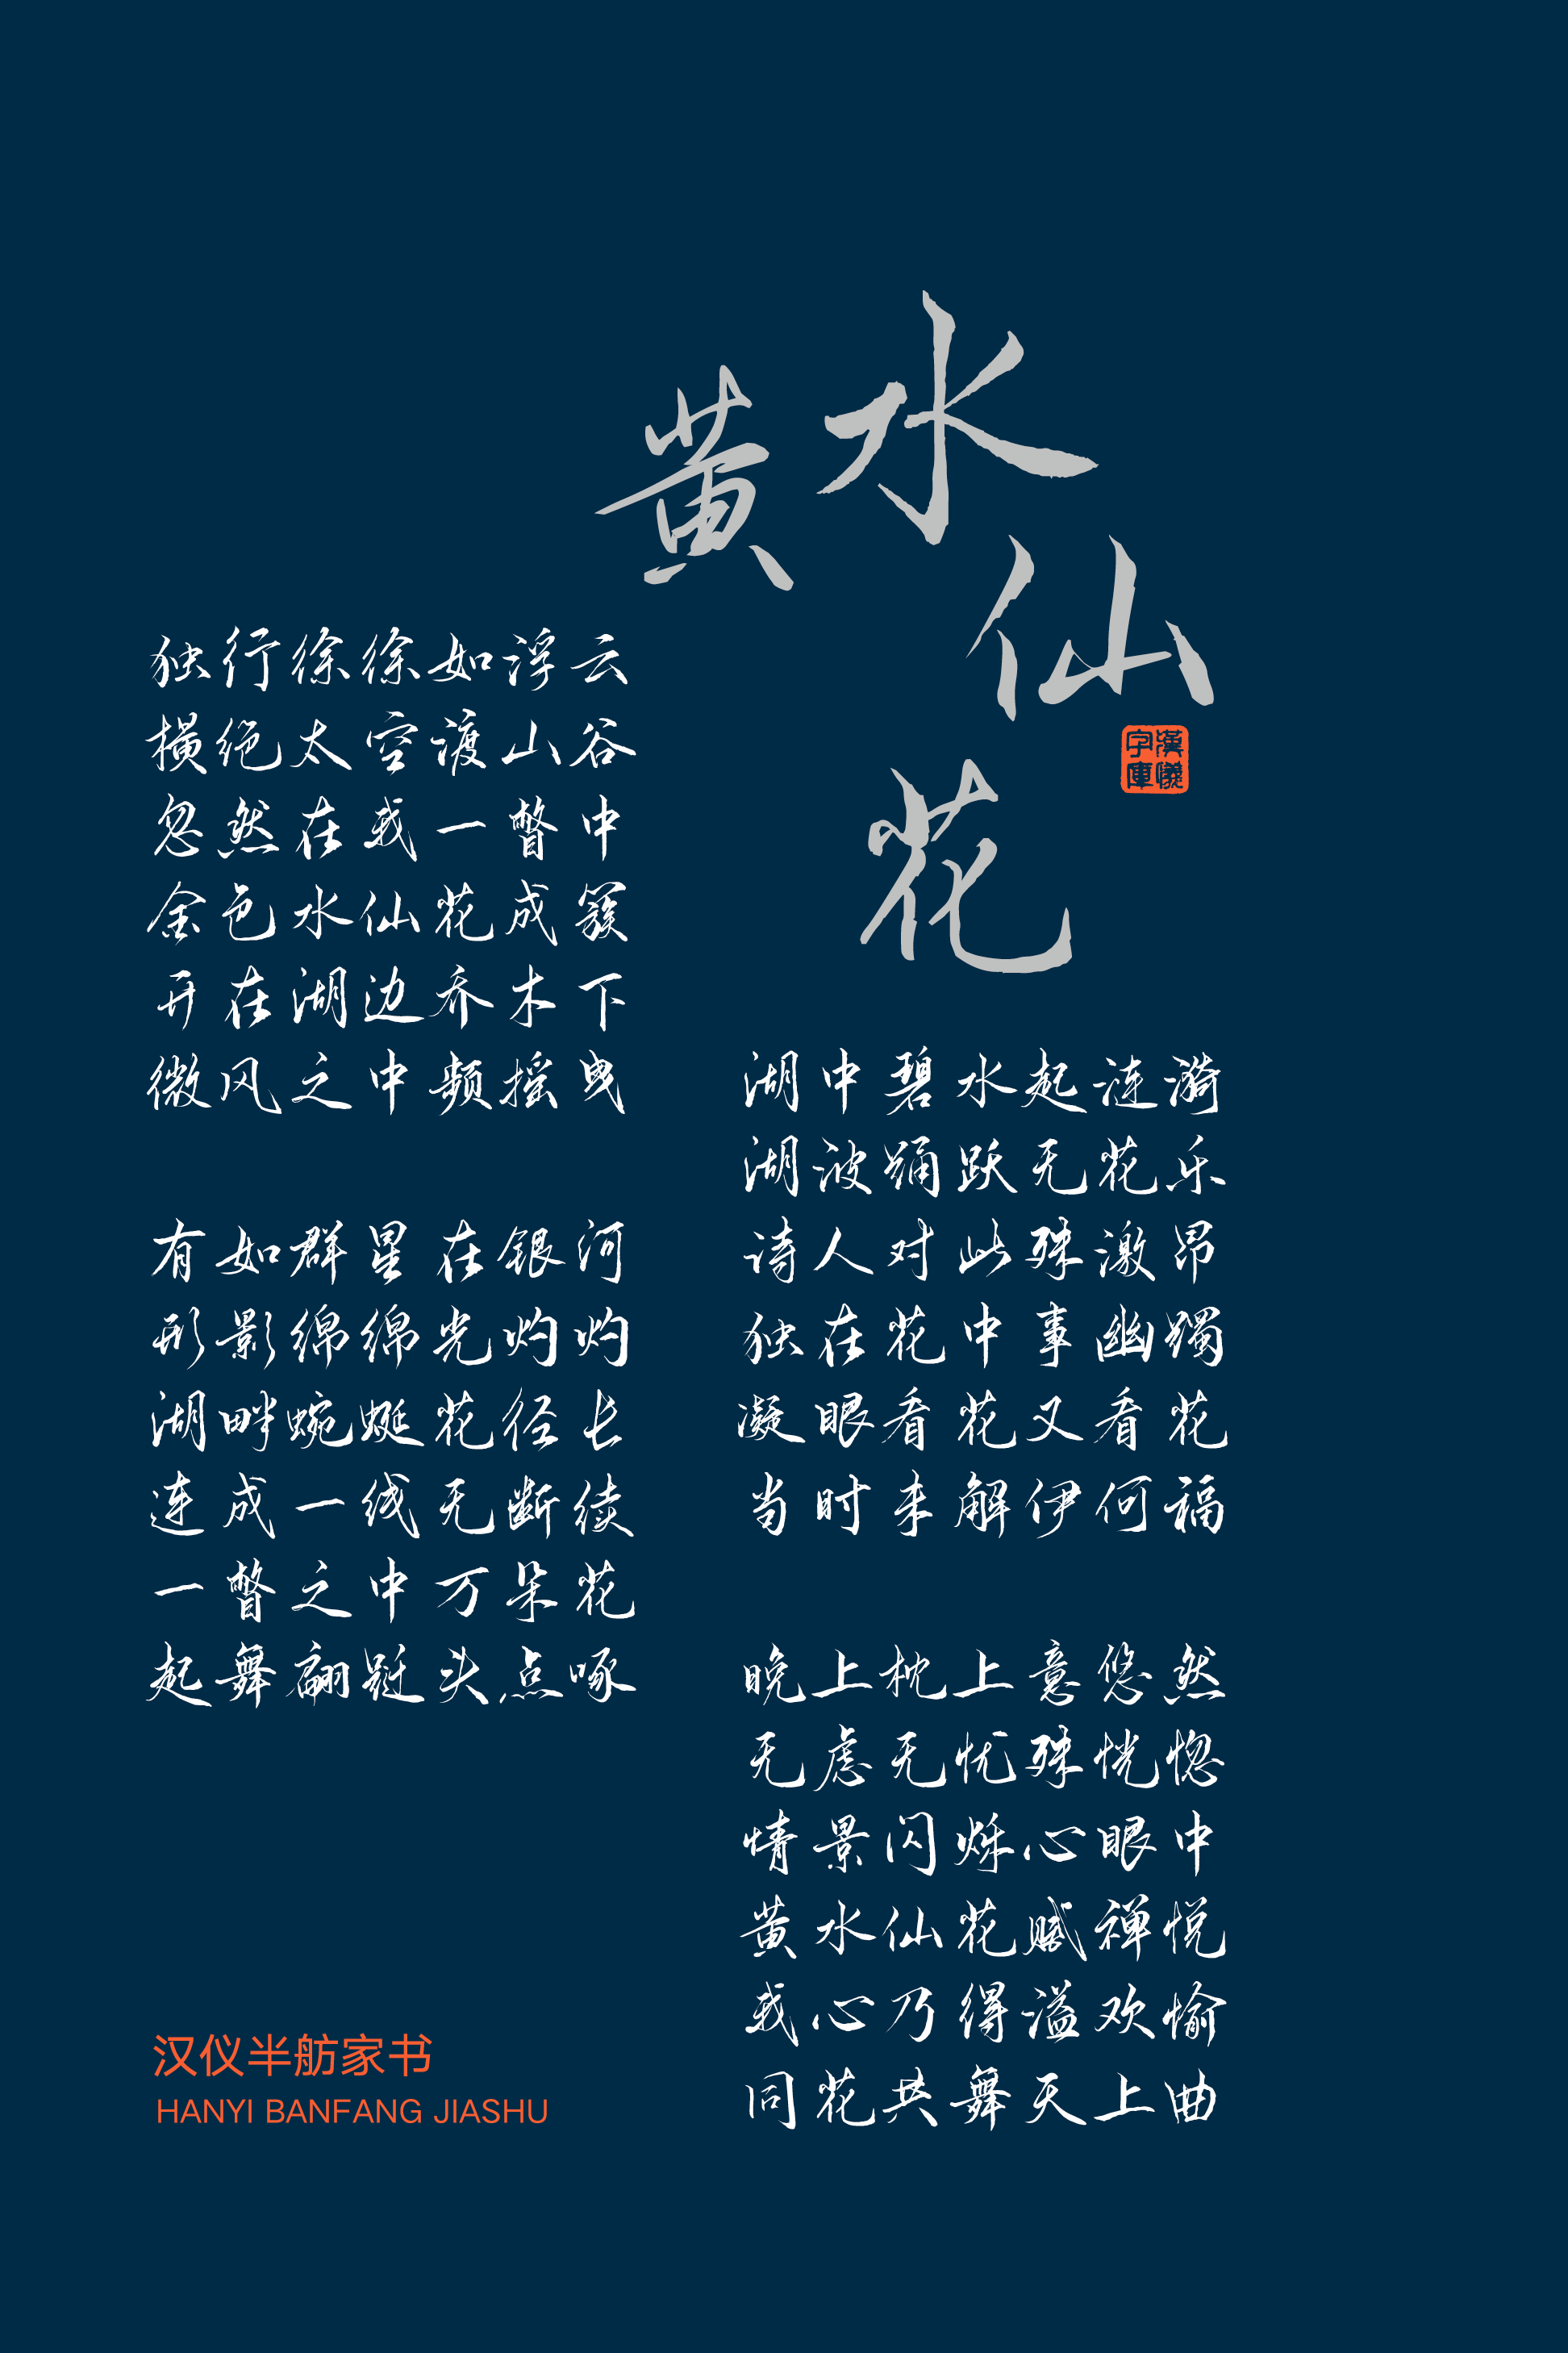 黄水仙花
漢儀字庫
独行徐徐如浮云
横绝太空渡山谷
忽然在我一瞥中
金色水仙花成簇
开在湖边乔木下
微风之中频摇曳
有如群星在银河
形影绵绵光灼灼
湖畔蜿蜒花径长
连成一线无断续
一瞥之中万朵花
起舞翩跹头点啄
湖中碧水起涟漪
湖波踊跃无花乐
诗人对此殊激昂
独在花中事幽躅
凝眼看花又看花
当时未解伊何福
晚上枕上意悠然
无虑无忧殊恍惚
情景闪烁心眼中
黄水仙花赋禅悦
我心乃得溢欢愉
同花共舞天上曲
汉仪半舫家书
HANYI BANFANG JIASHU